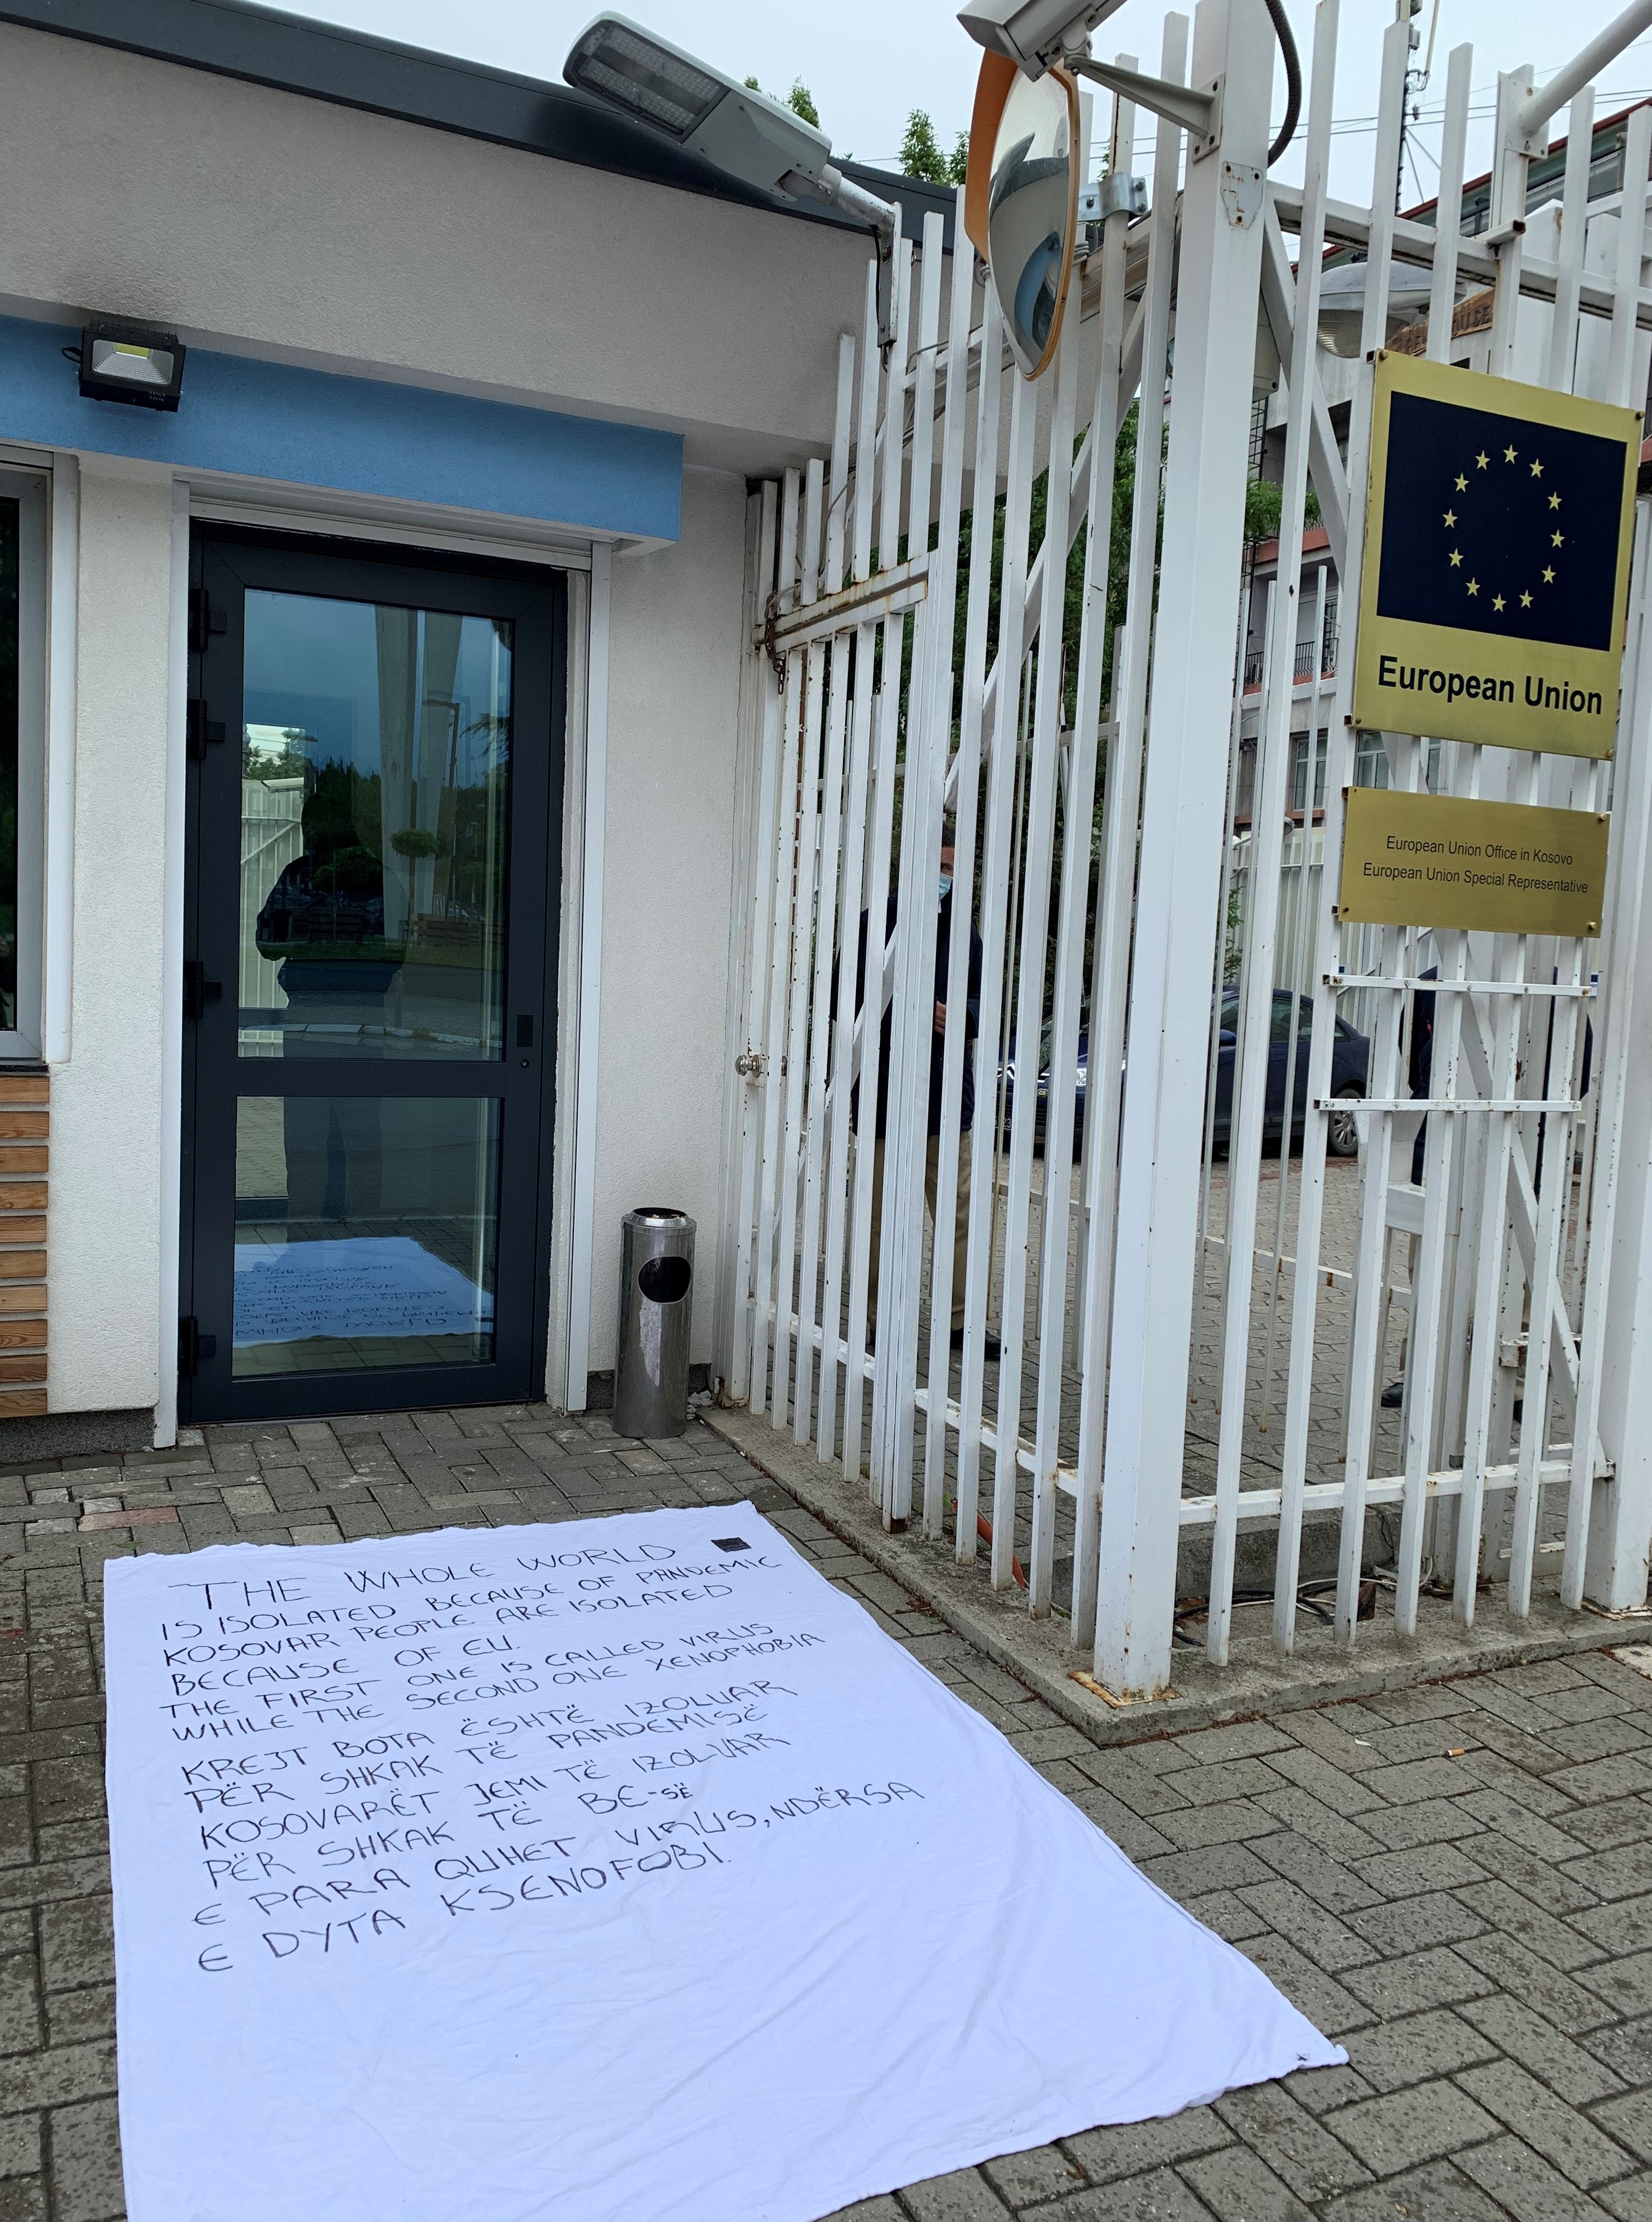 European Union
European Union Office in Kosovo
European Union Special Representative
THE WHOLE WORLD
IS ISOLATED BECAUSE OF PANDEMIC
KOSOVAR PEOPLE ARE ISOLATED
BECAUSE OF EU.
THE FIRST ONE IS CALLED VIRUS
WHILE THE SECOND ONE XENOPHOBIA
KREJT BOTA ËSHTË IZOLUAR
PËR SHKAK TË PANDEMISË
KOSOVARËT JEMI TË IZOLUAR
PËR SHKAK TË BE-SË
E PARA QUHET VIRUS, NDËRSA
E DYTA KSENOFOBI.